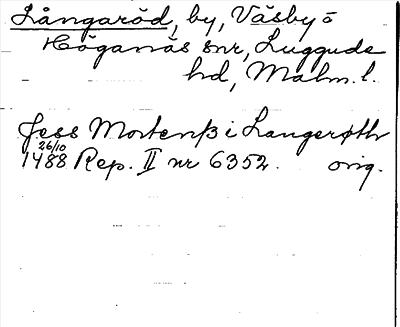 Långaröd, by, Väsby o
Höganäs snr, Luggude
hd, Malm. l.
Jess Mortenß i Langerøth
26/10
1488 Rep. II nr 6352. orig.